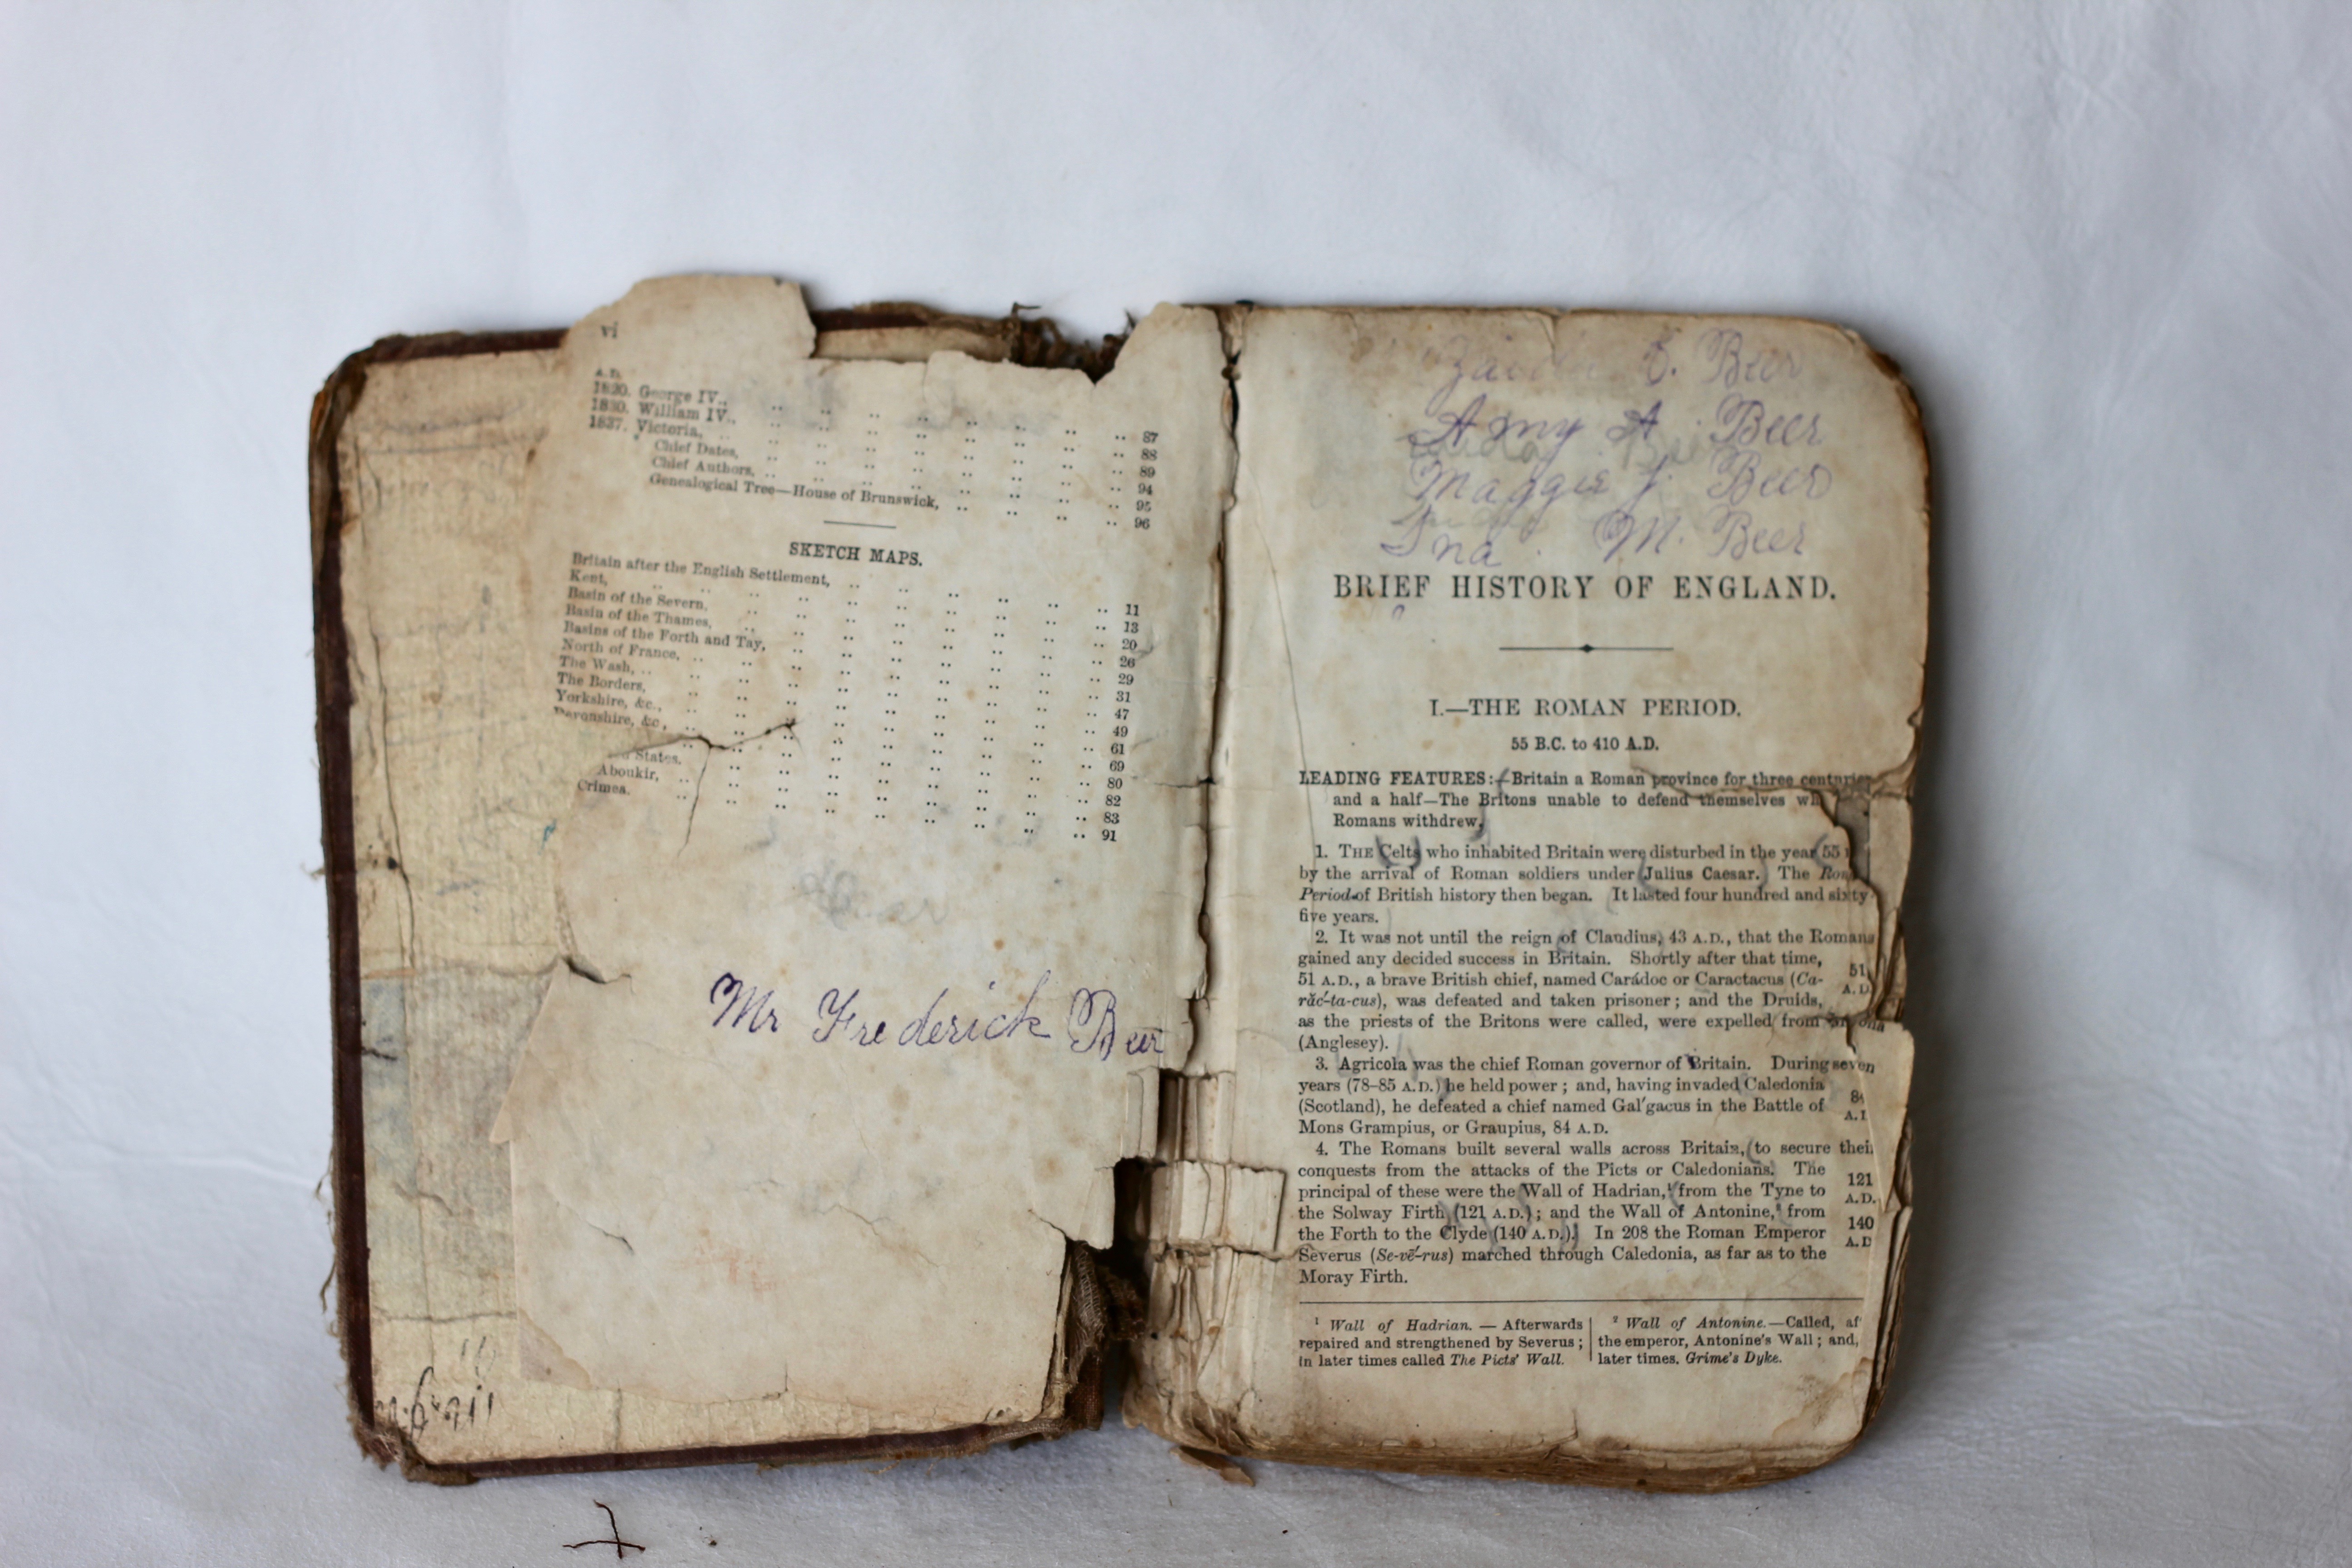 vi
A.D.
1820. George IV., .. .. .. .. .. .. .. .. 87
1830. William IV., .. .. .. .. .. .. .. .. 88
1837. Victoria, .. .. .. .. .. .. .. .. 89
Chief Dates, .. .. .. .. .. .. .. 94
Chief Authors, .. .. .. .. .. .. .. 95
Genealogical Tree—House of Brunswick, .. .. .. .. 96
SKETCH MAPS.
Britain after the English Settlement, .. .. .. .. .. .. 11
Kent, .. .. .. .. .. .. .. .. .. 13
Basin of the Severn, .. .. .. .. .. .. .. 20
Basin of the Thames, .. .. .. .. .. .. .. 26
Basins of the Forth and Tay, .. .. .. .. .. .. .. 29
North of France, .. .. .. .. .. .. .. .. 31
The Wash, .. .. .. .. .. .. .. .. .. 47
The Borders, .. .. .. .. .. .. .. .. .. 49
Yorkshire, &c., .. .. .. .. .. .. .. .. .. 61
Devonshire, &c., .. .. .. .. .. .. .. .. .. 69
States, .. .. .. .. .. .. .. .. 80
Aboukir, .. .. .. .. .. .. .. .. .. 82
Crimea. .. .. .. .. .. .. .. .. .. 91
Mr Frederick Beer
Beer
Amy A. Beer
Maggie J. Beer
Ina. M. Beer
BRIEF HISTORY OF ENGLAND.
I.—THE ROMAN PERIOD.
55 B.C. to 410 A.D.
LEADING FEATURES:—Britain a Roman province for three centuries
and a half—The Britons unable to defend themselves wh
Romans withdrew.
1. THE Celts who inhabited Britain were disturbed in the year 55
by the arrival of Roman soldiers under Julius Caesar. The Rom
Period of British history then began. It lasted four hundred and sixty-
five years.
2. It was not until the reign of Claudius, 43 A.D., that the Romans
gained any decided success in Britain. Shortly after that time,
51 A.D., a brave British chief, named Carádoc or Caractacus (Ca-
răc′-ta-cus), was defeated and taken prisoner; and the Druids,
51
A.D.
as the priests of the Britons were called, were expelled from
(Anglesey).
3. Agricola was the chief Roman governor of Britain. During seven
years (78–85 A.D.) he held power; and, having invaded Caledonia
(Scotland), he defeated a chief named Gal′gacus in the Battle of
Mons Grampius, or Graupius, 84 A.D.
84
A.D
4. The Romans built several walls across Britain, to secure their
conquests from the attacks of the Picts or Caledonians. The
principal of these were the Wall of Hadrian,¹ from the Tyne to
the Solway Firth (121 A.D.); and the Wall of Antonine,² from
the Forth to the Clyde (140 A.D.). In 208 the Roman Emperor
Severus (Se-vē′-rus) marched through Caledonia, as far as to the
Moray Firth.
121
A.D.
140
A.D
¹ Wall of Hadrian. — Afterwards
repaired and strengthened by Severus;
in later times called The Picts' Wall.
² Wall of Antonine.—Called, af
the emperor, Antonine's Wall; and,
later times, Grime's Dyke.